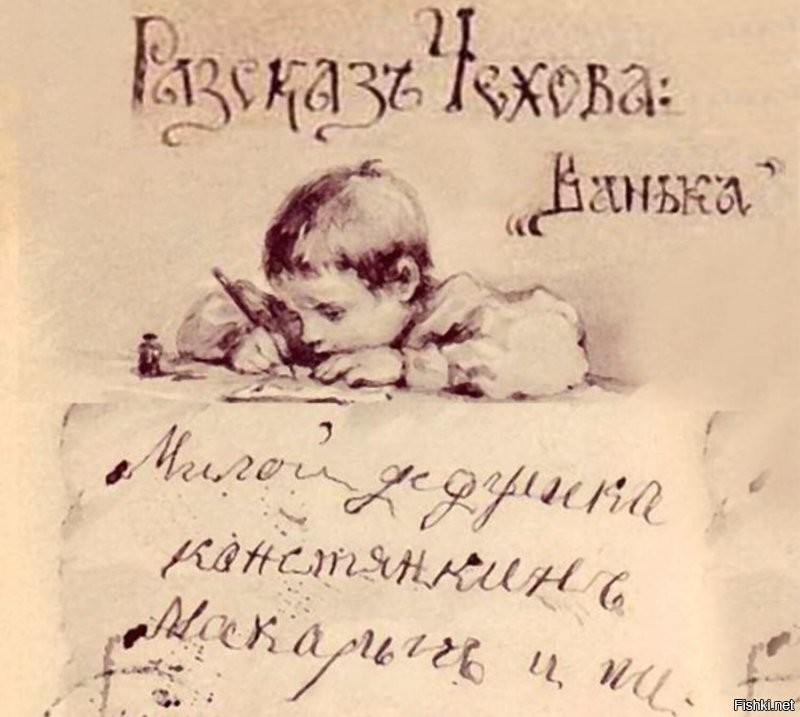 Разсказъ Чехова:
„Ванька”
Милой дедушка
констянкинъ
Макарычъ и
Fishki.net